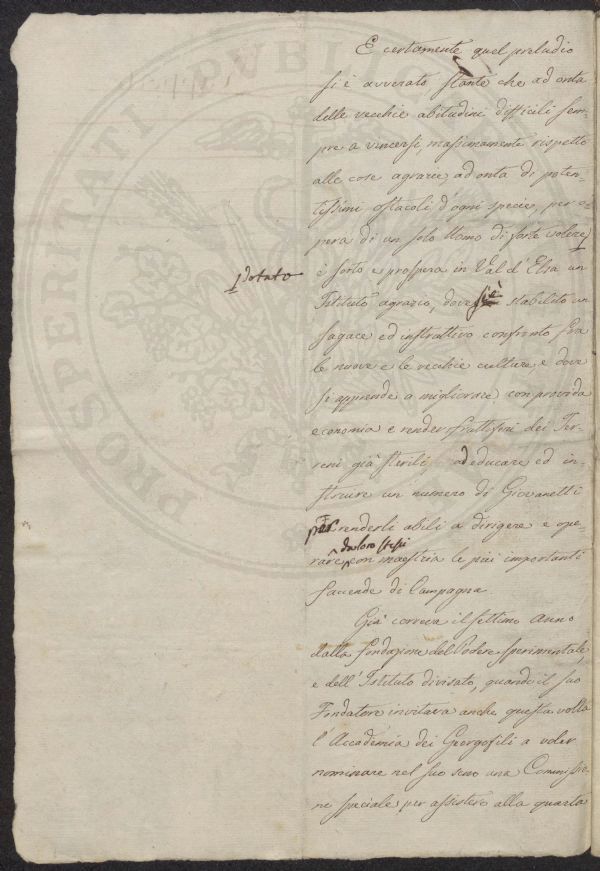 E certamente quel preludio
si è avverato, stante che ad onta
delle vecchie abitudini difficili sem-
pre a vincersi, massimamente rispetto
alle cose agrarie, ad onta di poten-
tissimi ostacoli d'ogni specie, per o-
pera di un solo Uomo di forte volere
dotato
è sorto e prospera in Val d'Elsa un
Istituto agrario, dove si è stabilito un
sagace ed instruttivo confronto fra
le nuove e le vecchie culture, e dove
si apprende a migliorare con provvida
economia e render fruttiferi dei Ter-
reni già sterili, ad educare ed in-
struire un numero di Giovanetti
per renderli abili a dirigere e ope-
rare da loro stessi con maestria le più importanti
faccende di Campagna.
Già correva il settimo anno
dalla fondazione del Podere sperimentale,
e dell'Istituto divisato, quando il suo
Fondatore invitava anche questa volta
l'Accademia dei Georgofili a voler
nominare nel suo seno una Commissio-
ne speciale per assistere alla quarta
PROSPERITATI PUBLICAE